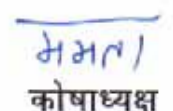 ममता
कोषाध्यक्ष